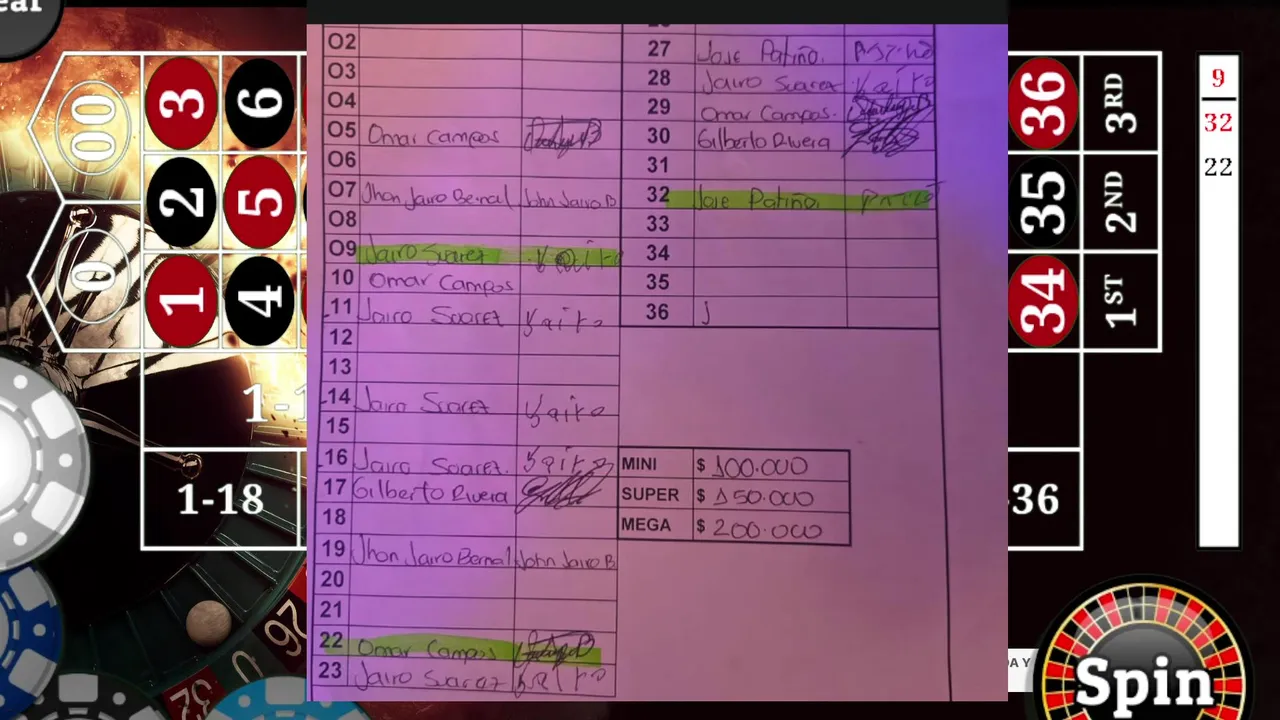 ear
00
0
3
6
2
5
1
4
1-18
02
03
04
05 Omar Campos
06
07 Jhon Jairo Bernal John Jairo B
08
09 Jairo Suarez
10 Omar Campos
11 Jairo Suarez Yairo
12
13
14 Jairo Suarez Yairo
15
16 Jairo Suarez. Yairo
17 Gilberto Rivera
18
19 Jhon Jairo Bernal John Jairo B
20
21
22 Omar Campos
23 Jairo Suarez
27 Jose Patiño.
28 Jairo Suarez Yairo
29 Omar Campos.
30 Gilberto Rivera
31
32 Jose Patiño.
33
34
35
36 J
MINI $ 100.000
SUPER $ 150.000
MEGA $ 200.000
36
3RD
35
2ND
34
1ST
-36
9
32
22
DAY
Spin
26
0
32